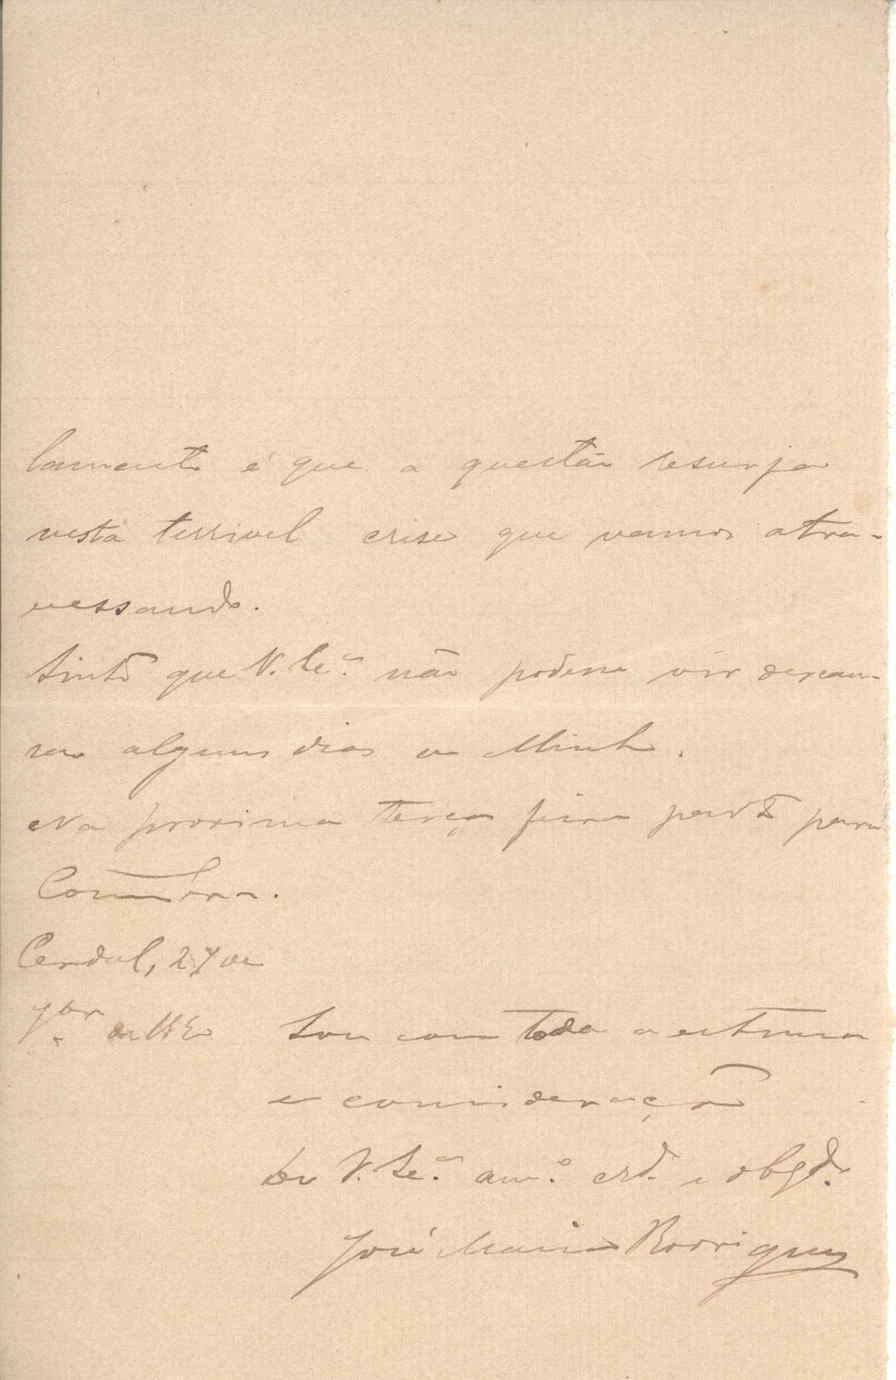 lamento é que a questão resurja
nesta terrivel crise que vamos atra-
vessando.
Sinto que V. Sê.ª não podesse vir descan-
sar alguns dias ao Minho.
Na proxima terça feira parto para
Coimbra.
Cerdal, 27 de
7.br de
Sou com toda a estima
e consideração
De V. Sê.ª am.º crd.º e obgd.º
José Maria Rodrigues